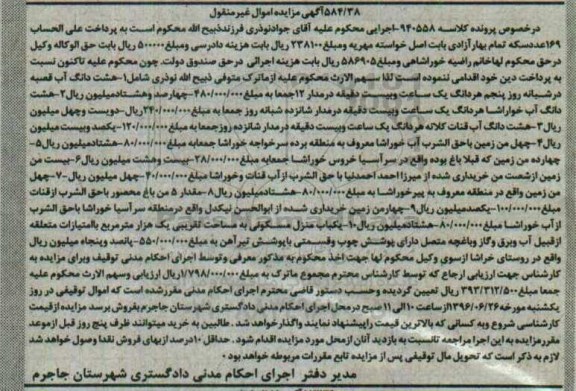 ۵۸۴/۳۸آگهی مزایده اموال غیرمنقول
درخصوص پرونده کلاسه ۹۴۰۵۵۸-اجرایی محکوم علیه آقای جوادنوذری فرزندذبیح الله محکوم است به پرداخت علی الحساب
۱۶۹عددسکه تمام بهارآزادی بابت اصل خواسته مهریه ومبلغ۲۳۸۱۰۰ ریال بابت هزینه دادرسی ومبلغ۵۰۰۰۰۰ ریال بابت حق الوکاله وکیل
درحق محکوم لهاخانم راضیه خوراشاهی ومبلغ۵۸۶۹۰۵ ریال بابت هزینه اجرائی درحق صندوق دولت. چون محکوم علیه تاکنون نسبت
به پرداخت دین خود اقدامی ننموده است لذا سهم الارث محکوم علیه ازماترک متوفی ذبیح الله نوذری شامل۱-هشت دانگ آب قصبه
درشبانه روز پنجم هردانگ یک ساعت وبیست دقیقه درمدار ۱۲جمعا به مبلغ۴۸۰/۰۰۰/۰۰۰-چهارصد وهشتادمیلیون ریال۲-هشت
دانگ آب خوراشا هردانگ یک ساعت وبیست دقیقه درمدار شانزده شبانه روز جمعا به مبلغ۲۴۰/۰۰۰/۰۰۰ریال-دویست وچهل میلیون
ریال۳-هشت دانگ آب قنات کلاته هردانگ یک ساعت وبیست دقیقه درمدار شانزده روزجمعا به مبلغ۱۲۰/۰۰۰/۰۰۰-یکصد وبیست میلیون
ریال۴-چهل من زمین باحق الشرب آب خوراشا معروف به منطقه برده سرخواجه خوراشا جمعابه مبلغ۸۰/۰۰۰/۰۰۰-هشتادمیلیون ریال۵-
چهارده من زمین که قبلا باغ بوده واقع در سرآسیا خروس خوراشا جمعابه مبلغ۲۸/۰۰۰/۰۰۰-بیست وهشت میلیون ریال۶-بیست من
زمین ازشصت من خریداری شده از میرزا احمد احمدلیا با حق الشرب از آب قنات وخوراشا مبلغ۴۰/۰۰۰/۰۰۰-چهل میلیون ریال-۷-چهل
من زمین واقع در منطقه معروف به پیرخوراشا به مبلغ۸۰/۰۰۰/۰۰۰-هشتادمیلیون ریال۸-مقدار ۵ من باغ محصور باحق الشرب ازقنات
مبلغ۱۰۰/۰۰۰/۰۰۰-یکصدمیلیون ریال۹-چهارمن زمین خریداری شده از ابوالحسن نیکدل واقع درمنطقه سرآسیا خوراشا باحق الشرب
از آب خوراشا مبلغ۸۰/۰۰۰/۰۰۰-هشتادمیلیون ریال۱۰-یکباب منزل مسکونی به مساحت تقریبی یک هزار مترمربع باامتیازات متعلقه
ازقبیل آب وبرق وگاز وباغچه متصل دارای پوشش چوب وقسمتی باپوشش تیرآهن به مبلغ۵۵۰/۰۰۰/۰۰۰-پانصد وپنجاه میلیون ریال
واقع در روستای خراشا ازسوی وکیل محکوم لها جهت اخذ محکوم به مذکور معرفی وتوسط اجرای احکام مدنی توقیف وبرای مزایده به
کارشناس جهت ارزیابی ارجاع که توسط کارشناس محترم مجموع ماترک به مبلغ۱/۷۹۸/۰۰۰/۰۰۰ریال ارزیابی وسهم الارث محکوم علیه
جمعا مبلغ۳۹۳/۳۱۲/۵۰۰ ریال تعیین گردیده وحسب دستور قاضی محترم اجرای احکام مدنی مقررشده است که اموال توقیفی در روز
یکشنبه مورخه۱۳۹۶/۰۶/۲۶ازساعت ۱۰الی ۱۱ صبح درمحل اجرای احکام مدنی دادگستری شهرستان جاجرم بفروش برسد مزایده ازقیمت
کارشناسی شروع وبه کسانی که بالاترین قیمت راپیشنهاد نمایند واگذارخواهد شد. طالبین به خرید میتوانند ظرف پنج روز قبل ازموعد
مقررمزایده به این اجرا مراجعه تانسبت به بازدید آنان ازمحل مورد مزایده اقدام شود. حداقل ۱۰درصد ازبهای فروش نقدا وصول خواهد شد
لازم به ذکر است که تحویل مال توقیفی پس از مزایده تابع مقررات مربوطه خواهد بود.
مدیر دفتر اجرای احکام مدنی دادگستری شهرستان جاجرم